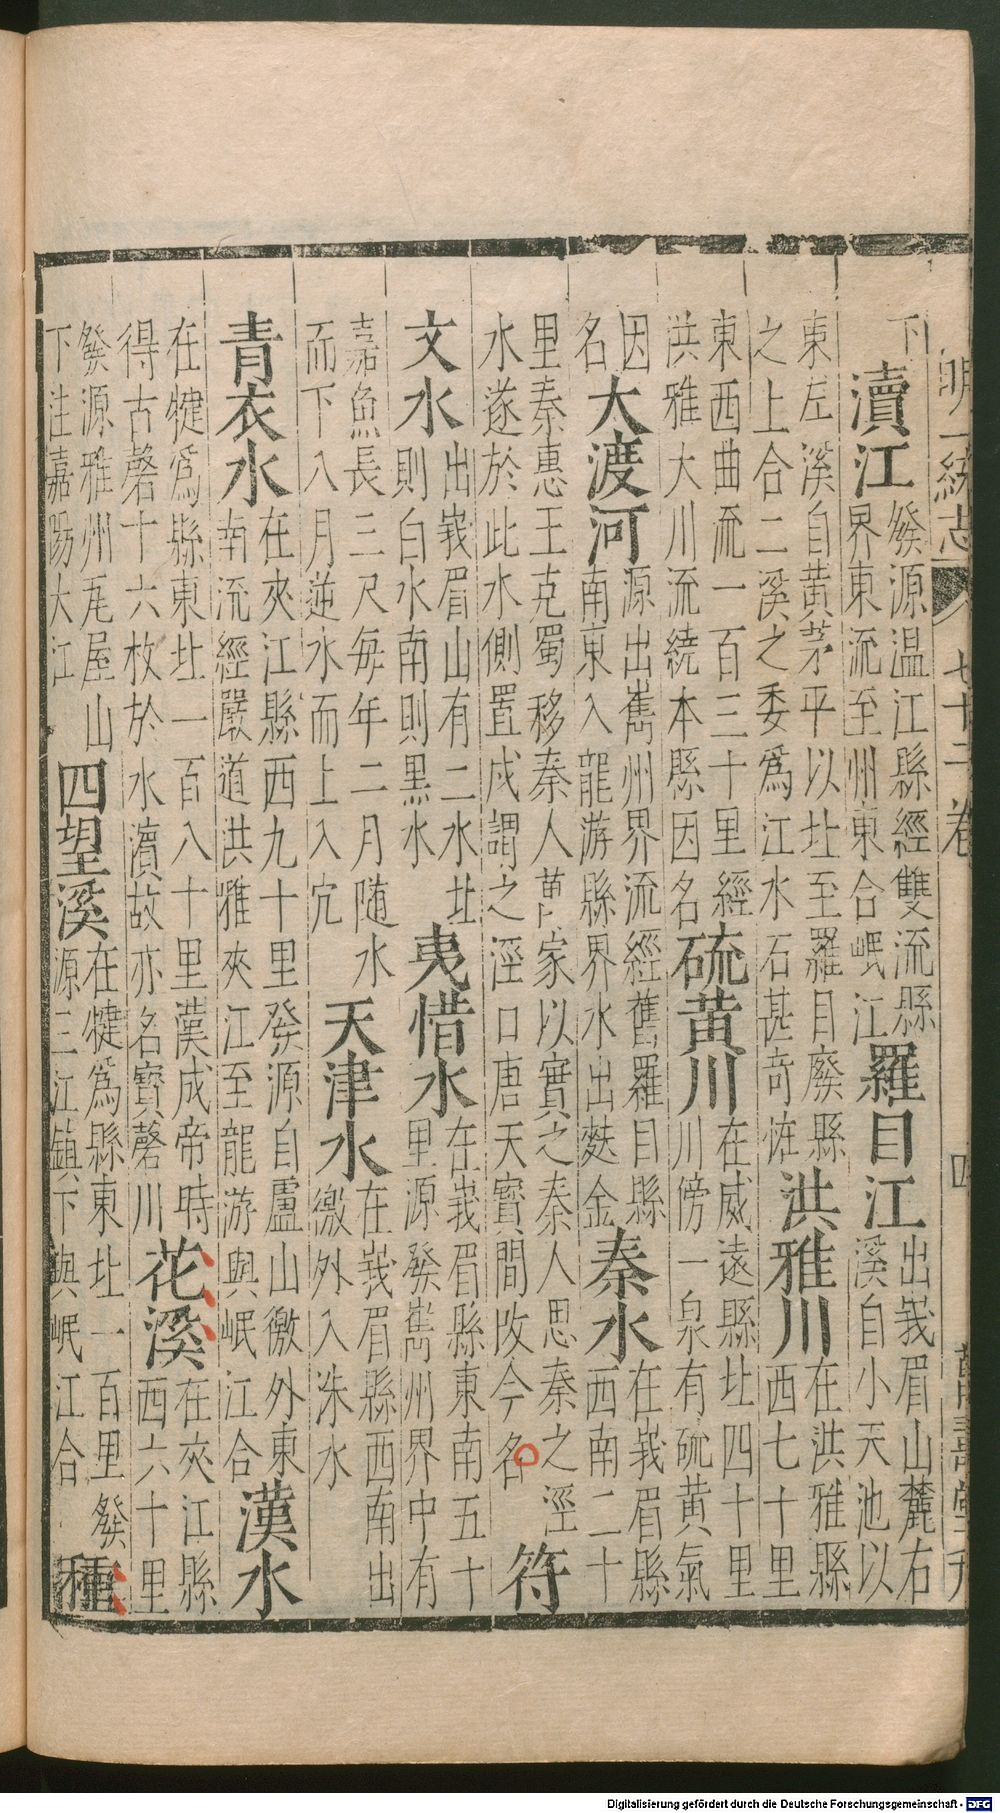 明一統志 七十二卷 四 萬壽堂刊
下
瀆江
發源温江縣經雙流縣
界東流至州東合岷江
羅目江
出峩眉山麓右
溪自小天池以
東左溪自黃茅平以北至羅目廢縣
之上合二溪之委爲江水石甚奇怪
洪雅川
在洪雅縣
西七十里
東西曲流一百三十里經
洪雅大川流繞本縣因名
硫黃川
在威遠縣北四十里
川傍一泉有硫黃氣
因
名
大渡河
源出嶲州界流經舊羅目縣
南東入龍游縣界水出麩金
秦水
在峩眉縣
西南二十
里秦惠王克蜀移秦人萬家以實之秦人思秦之涇
水遂於此水側置戍謂之涇口唐天寶間改今名
符
文水
出峩眉山有二水北
則白水南則黑水
夷惜水
在峩眉縣東南五十
里源發嶲州界中有
嘉魚長三尺每年二月随水
而下八月逆水而上入穴
天津水
在峩眉縣西南出
徼外入洙水
青衣水
在夾江縣西九十里發源自盧山徼外東
南流經嚴道洪雅夾江至龍游與岷江合
漢水
在犍爲縣東北一百八十里漢成帝時
得古磬十六枚於水濵故亦名寶磬川
花溪
在夾江縣
西六十里
發源雅州瓦屋山
下注嘉陽大江
四望溪
在犍爲縣東北一百里發
源三江鎮下與岷江合
種
Digitalisierung gefördert durch die Deutsche Forschungsgemeinschaft - DFG